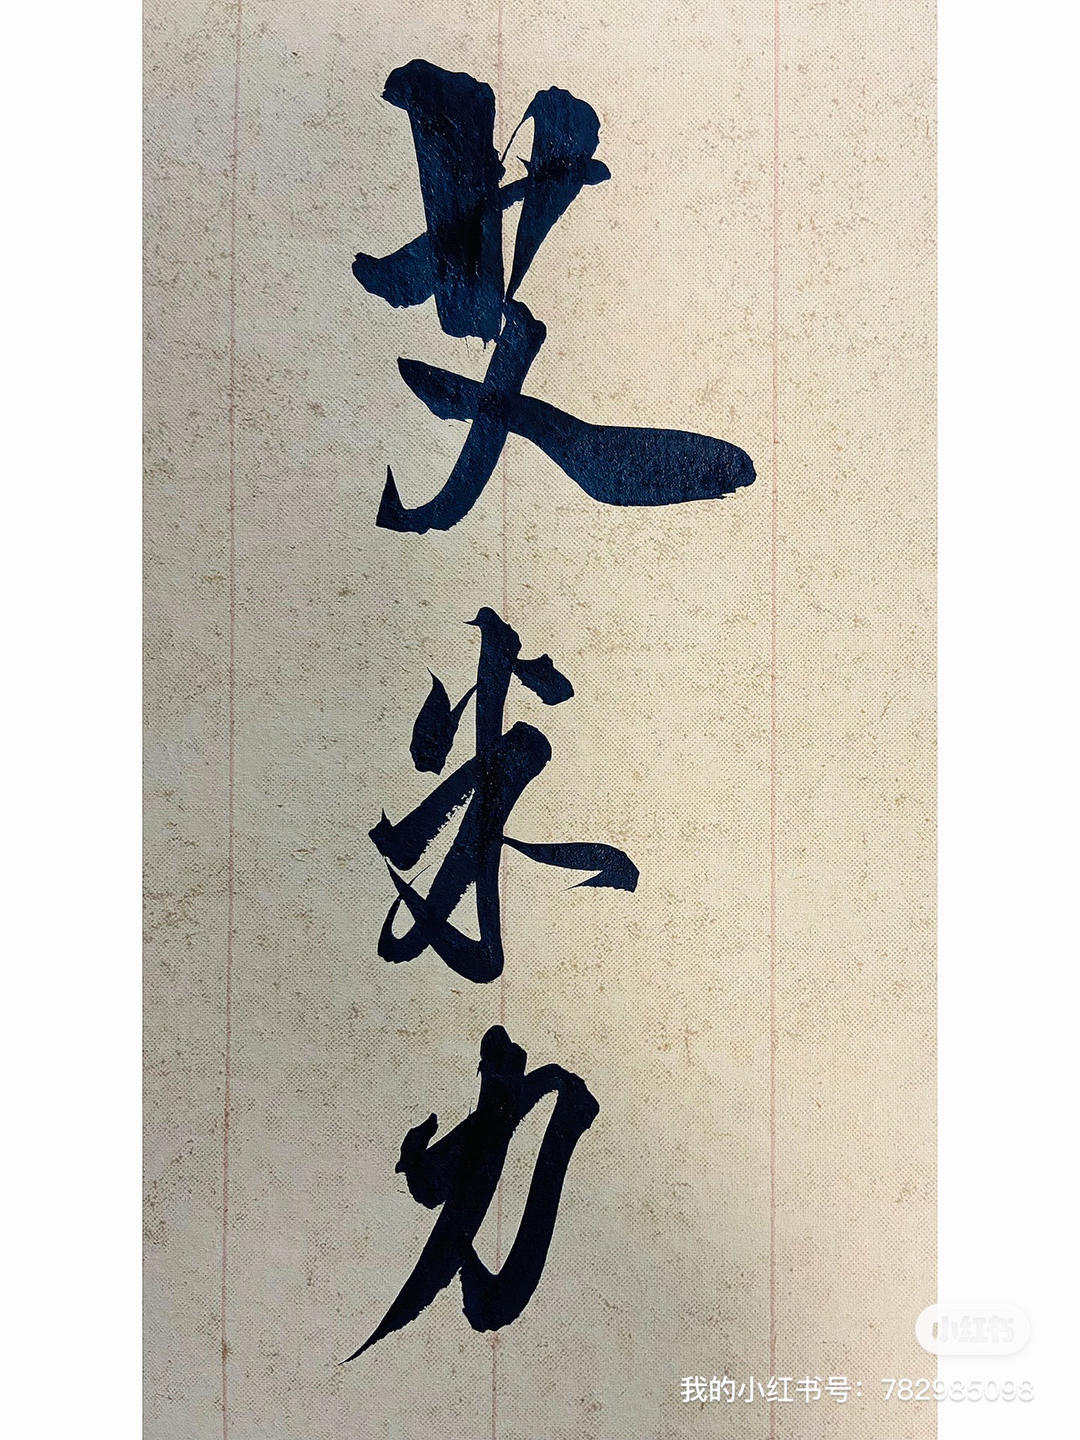 艾米力
小红书
我的小红书号：782985098